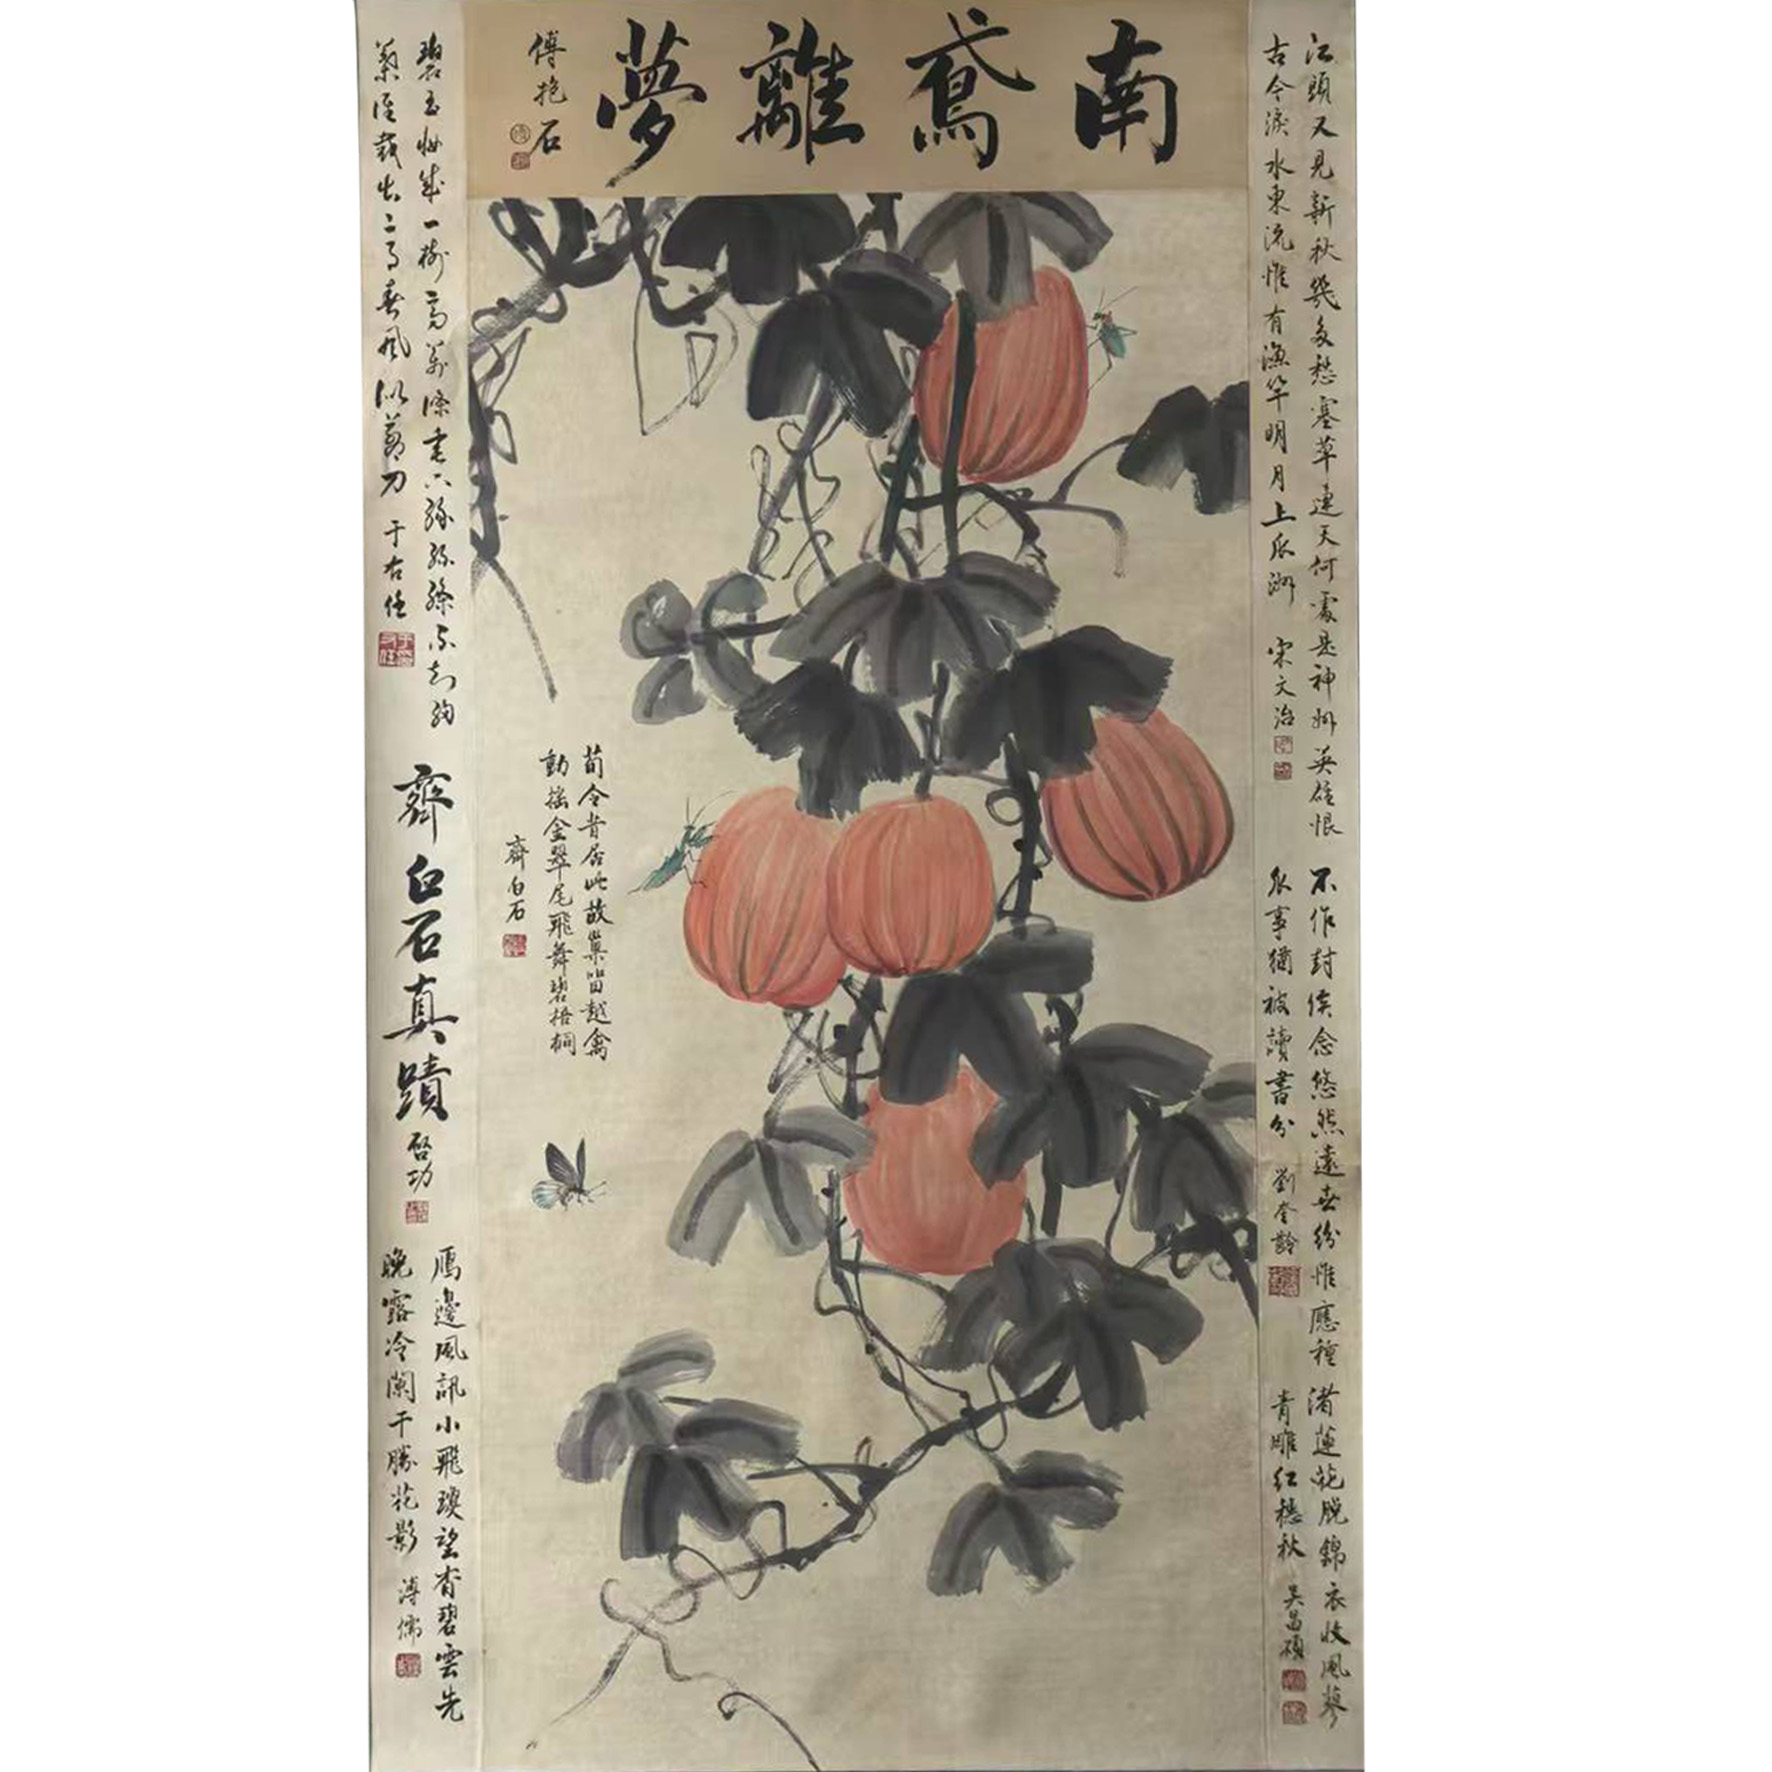 南鳶離夢
傅抱石
江頭又見新秋幾多愁塞草連天何處是神州英雄恨
古今淚水東流惟有漁竿明月上瓜洲
宋文治
不作封侯念悠然遠世紛惟應種
瓜事猶被讀書分
劉奎齡
渚蓮花脫錦衣收風蓼
青雕紅穗秋
吴昌碩
荀令昔居此故巢留越禽
動搖金翠尾飛舞碧梧桐
齊白石
碧玉妝成一樹高萬條垂下綠絲絛不知細
葉誰裁出二月春風似剪刀
于右任
齊白石真蹟
啓功
鴈邊風訊小飛瓊望杳碧雲先
晚露冷闌干勝花影
溥儒